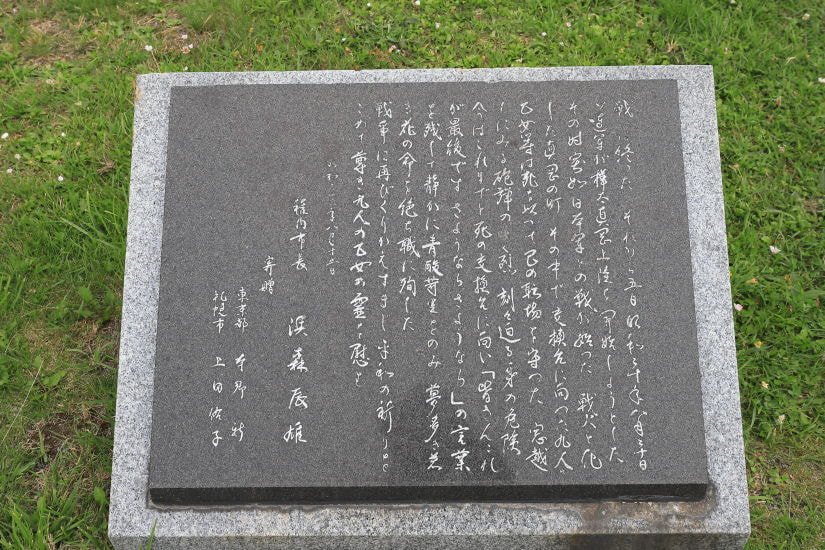 戦いは終った それから五日 昭和二十年八月二十日
ソ連軍が樺太真岡上陸を開始しようとした
その時突如日本軍との戦が始った 戦火と化
した真岡の町 その中で交換台に向った九人の
乙女等は死を以って己の職場を守った 窓越
しにみる砲弾のさく裂 刻々迫る身の危険
今はこれまでと死の交換台に向い「皆さんこれ
が最後です さようならさようなら」の言葉
を残して静かに青酸苛里をのみ 夢多き若
き花の命を絶ち職に殉じた
戦争は再びくりかえすまじ 平和の祈りを
こめて尊き九人の乙女の霊を慰む
昭和三十八年八月十五日
稚内市長 浜森辰雄
寄贈
東京都 本郷新
札幌市 上田佑子